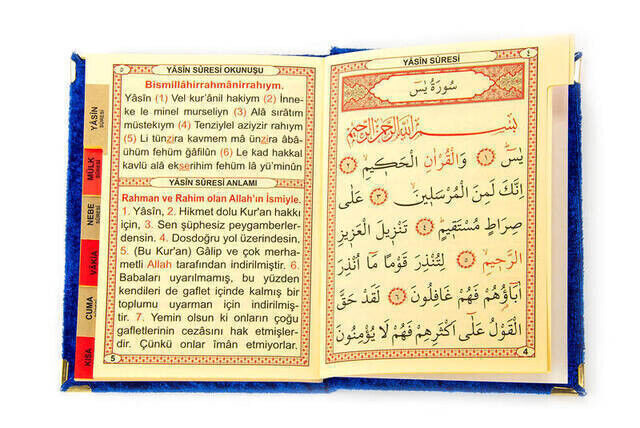 YÂSİN SÛRESİ
٤
سُورَةُ يٰسٓ
بِسْمِ اللّٰهِ الرَّحْمٰنِ الرَّحِيمِ
يٰسٓ ﴿١﴾ وَالْقُرْاٰنِ الْحَكِيمِ ﴿٢﴾
اِنَّكَ لَمِنَ الْمُرْسَلِينَ ﴿٣﴾ عَلٰى
صِرَاطٍ مُسْتَقِيمٍ ﴿٤﴾ تَنْزِيلَ الْعَزِيزِ
الرَّحِيمِ ﴿٥﴾ لِتُنْذِرَ قَوْمًا مَٓا اُنْذِرَ
اٰبَٓاؤُ۬هُمْ فَهُمْ غَافِلُونَ ﴿٦﴾ لَقَدْ حَقَّ
الْقَوْلُ عَلٰٓى اَكْثَرِهِمْ فَهُمْ لَا يُؤْمِنُونَ
4
YÂSİN SÛRESİ OKUNUŞU
٥
Bismillâhirrahmânirrahıym.
Yâsîn (1) Vel kur'ânil hakiym (2) İnne-
ke le minel murseliyn (3) Alâ sırâtım
müstekıym (4) Tenziylel aziyzir rahıym
(5) Li tünzira kavmem mâ ünzira âbâ-
ühüm fehüm ğâfilûn (6) Le kad hakkal
kavlü alâ ekserihim fehüm lâ yü'minûn
YÂSİN SÛRESİ ANLAMI
Rahman ve Rahim olan Allah'ın ismiyle.
1. Yâsîn, 2. Hikmet dolu Kur'an hakkı
için, 3. Sen şüphesiz peygamberler-
densin. 4. Dosdoğru yol üzerindesin.
5. (Bu Kur'an) Gâlip ve çok merha-
metli Allah tarafından indirilmiştir. 6.
Babaları uyarılmamış, bu yüzden
kendileri de gaflet içinde kalmış bir
toplumu uyarman için indirilmiş-
tir. 7. Yemin olsun ki onların çoğu
gafletlerinin cezasını hak etmişler-
dir. Çünkü onlar îmân etmiyorlar.
5
YÂSİN
SÛRESİ
MÜLK
SÛRESİ
NEBE
SÛRESİ
VÂKIA
CUMA
KISA